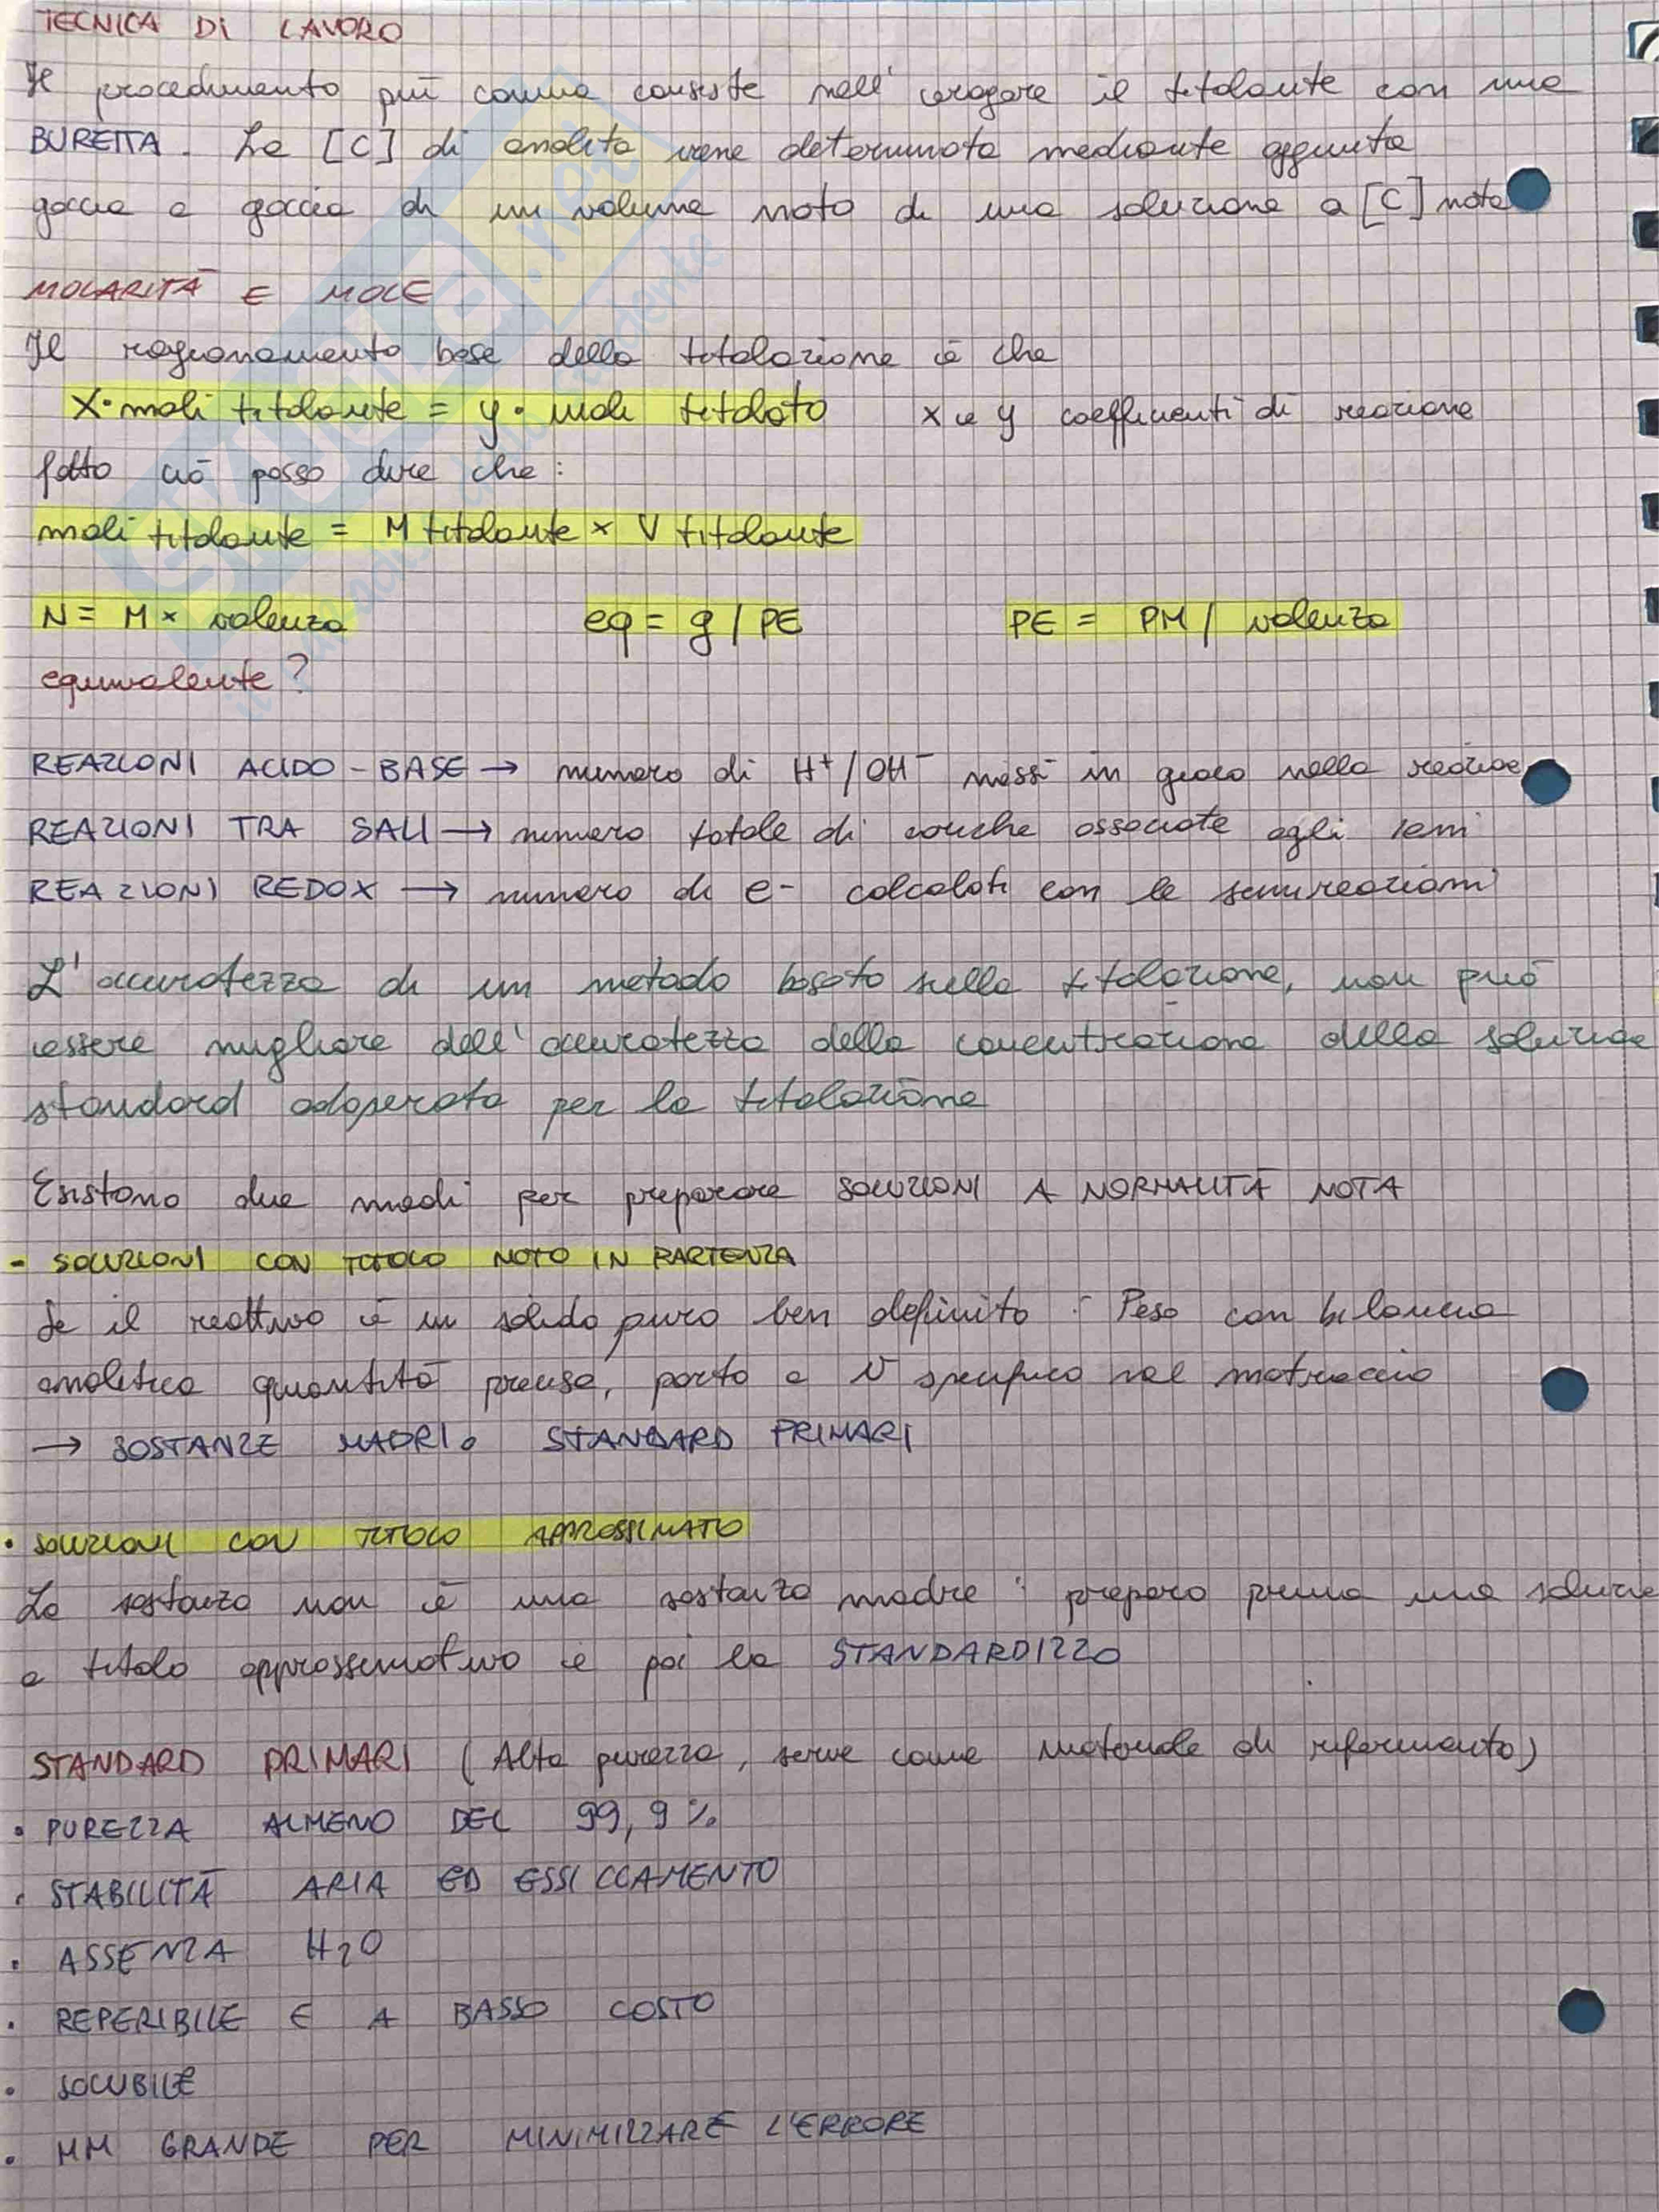 TECNICA DI LAVORO
Il procedimento più comune consiste nell'erogare il titolante con una
BURETTA. La [C] di analita viene determinata mediante aggiunta
goccia a goccia di un volume noto di una soluzione a [C] nota
MOLARITÀ E MOLE
Il ragionamento base della titolazione è che
X•moli titolante = y• moli titolato x e y coefficienti di reazione
fatto ciò posso dire che:
moli titolante = M titolante × V titolante
N = M × valenza eq = g / PE PE = PM / valenza
equivalente?
REAZIONI ACIDO-BASE → numero di H⁺/OH⁻ messi in gioco nella reazione
REAZIONI TRA SALI → numero totale di cariche associate agli ioni
REAZIONI REDOX → numero di e- calcolati con le semireazioni
L'accuratezza di un metodo basato sulla titolazione, non può
essere migliore dell'accuratezza della concentrazione della soluzione
standard adoperata per la titolazione
Esistono due modi per preparare SOLUZIONI A NORMALITÀ NOTA
- SOLUZIONI CON TITOLO NOTO IN PARTENZA
Se il reattivo è un solido puro ben definito: Peso con bilancia
analitica quantità precisa, porto a V specifico nel matraccio
→ SOSTANZE MADRI o STANDARD PRIMARI
• SOLUZIONI CON TITOLO APPROSSIMATO
La sostanza non è una sostanza madre: preparo prima una soluzione
a titolo approssimativo e poi la STANDARDIZZO
STANDARD PRIMARI (Alta purezza, serve come materiale di riferimento)
• PUREZZA ALMENO DEL 99,9%
• STABILITÀ ARIA ED ESSICCAMENTO
• ASSENZA H2O
• REPERIBILE E A BASSO COSTO
• SOLUBILE
• MM GRANDE PER MINIMIZZARE L'ERRORE